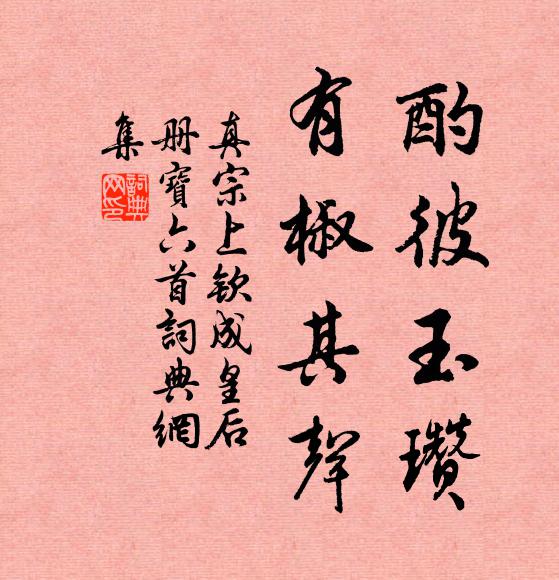 酌彼玉瓚
有椒其聲
真宗上欽成皇后
册寶六首詞典網
集
詞典網印